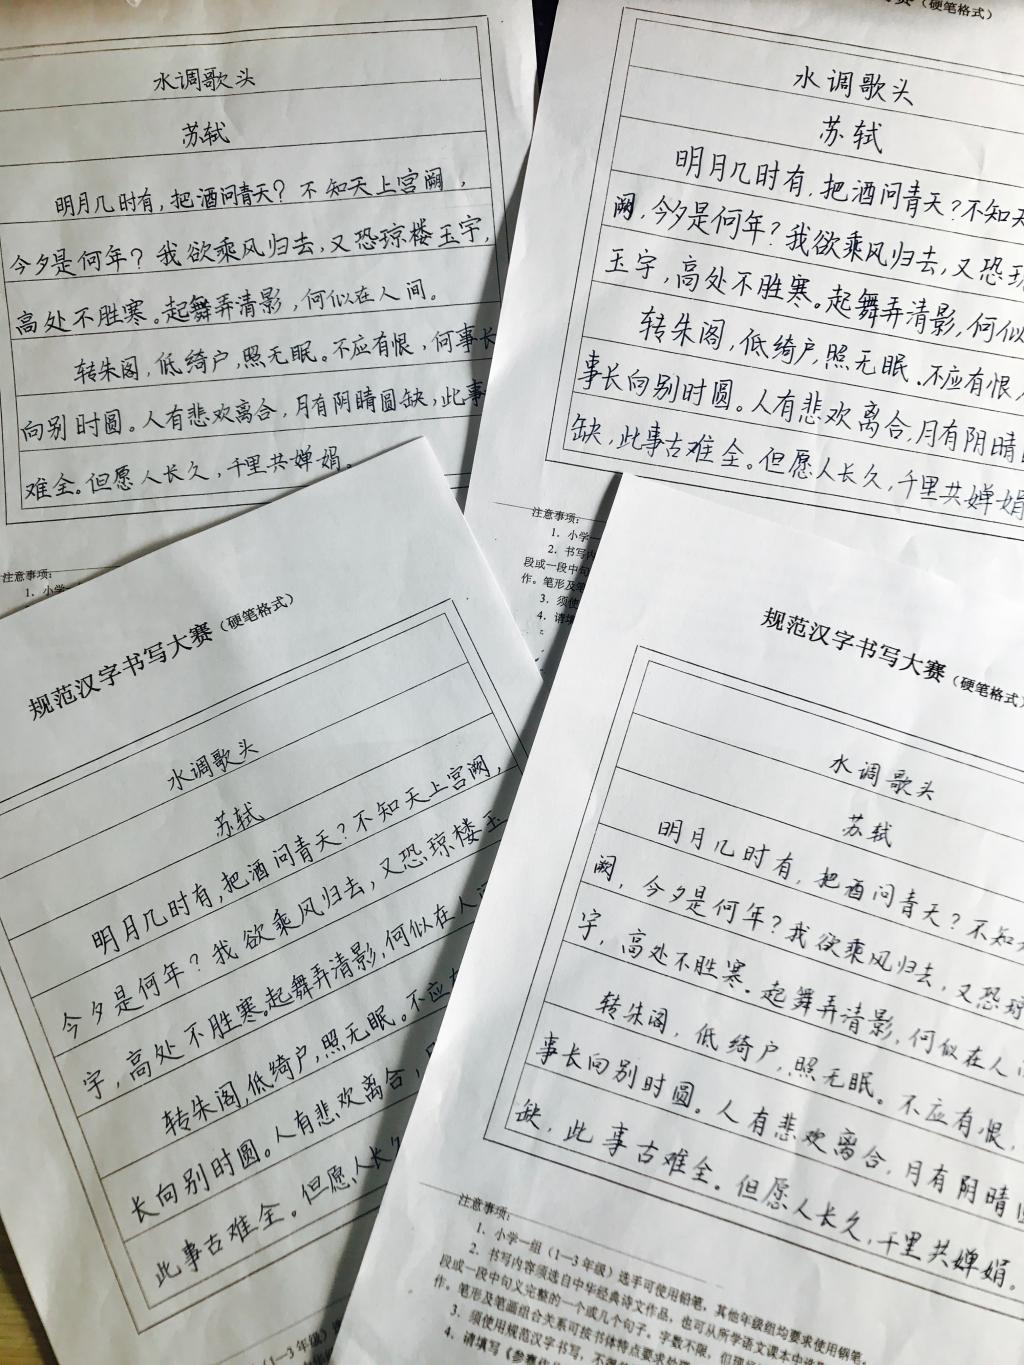 水调歌头
苏轼
明月几时有,把酒问青天?不知天上宫阙,
今夕是何年?我欲乘风归去,又恐琼楼玉宇,
高处不胜寒。起舞弄清影,何似在人间。
转朱阁,低绮户,照无眠。不应有恨,何事长
向别时圆。人有悲欢离合,月有阴晴圆缺,此事
难全。但愿人长久,千里共婵娟。
注意事项:
1. 小学
(硬笔格式)
水调歌头
苏轼
明月几时有,把酒问青天?不知天
阙,今夕是何年?我欲乘风归去,又恐琼
玉宇,高处不胜寒。起舞弄清影,何似
转朱阁,低绮户,照无眠.不应有恨,
事长向别时圆。人有悲欢离合,月有阴晴
缺,此事古难全。但愿人长久,千里共婵娟
注意事项:
1. 小学一
2. 书写内
段或一段中句
作。笔形及笔
3. 须使
4. 请填
规范汉字书写大赛(硬笔格式)
水调歌头
苏轼
明月几时有,把酒问青天?不知天上宫阙,
今夕是何年?我欲乘风归去,又恐琼楼玉
宇,高处不胜寒。起舞弄清影,何似在人
转朱阁,低绮户,照无眠。不应
长向别时圆。人有悲欢离合,
此事古难全。但愿人长久
(1—3年级)
规范汉字书写大赛(硬笔格式)
水调歌头
苏轼
明月几时有,把酒问青天?不知
阙,今夕是何年?我欲乘风归去,又恐琼
宇,高处不胜寒.起舞弄清影,何似在人
转朱阁,低绮户,照无眠。不应有恨,
事长向别时圆。人有悲欢离合,月有阴晴
缺,此事古难全。但愿人长久,千里共婵娟。
注意事项:
1. 小学一组(1—3年级)选手可使用铅笔,其他年级组均要求使用钢笔,
2. 书写内容须选自中华经典诗文作品,也可从所学语文课本中选
段或一段中句义完整的一个或几个句子。字数不限,但
作。笔形及笔画组合关系可按书体特点要求处
3. 须使用规范汉字书写,不得
4. 请填写《参赛作品